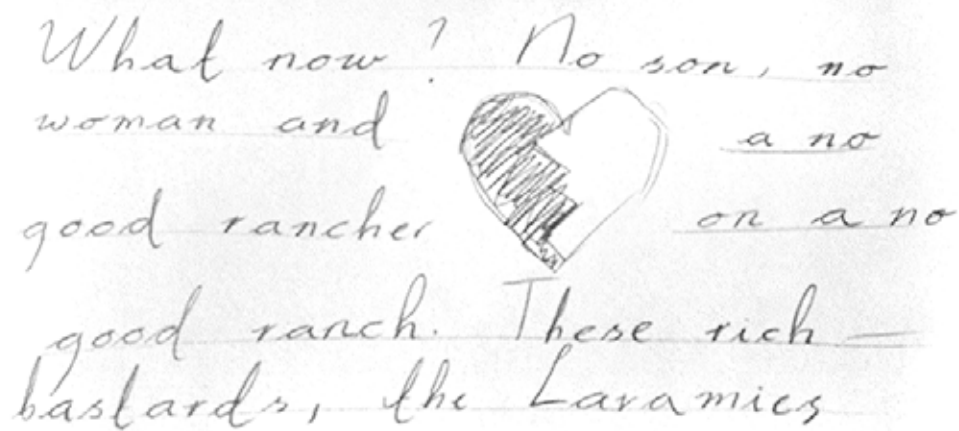 What now? No son, no
woman and a no
good rancher on a no
good ranch. These rich –
bastards, the Laramies